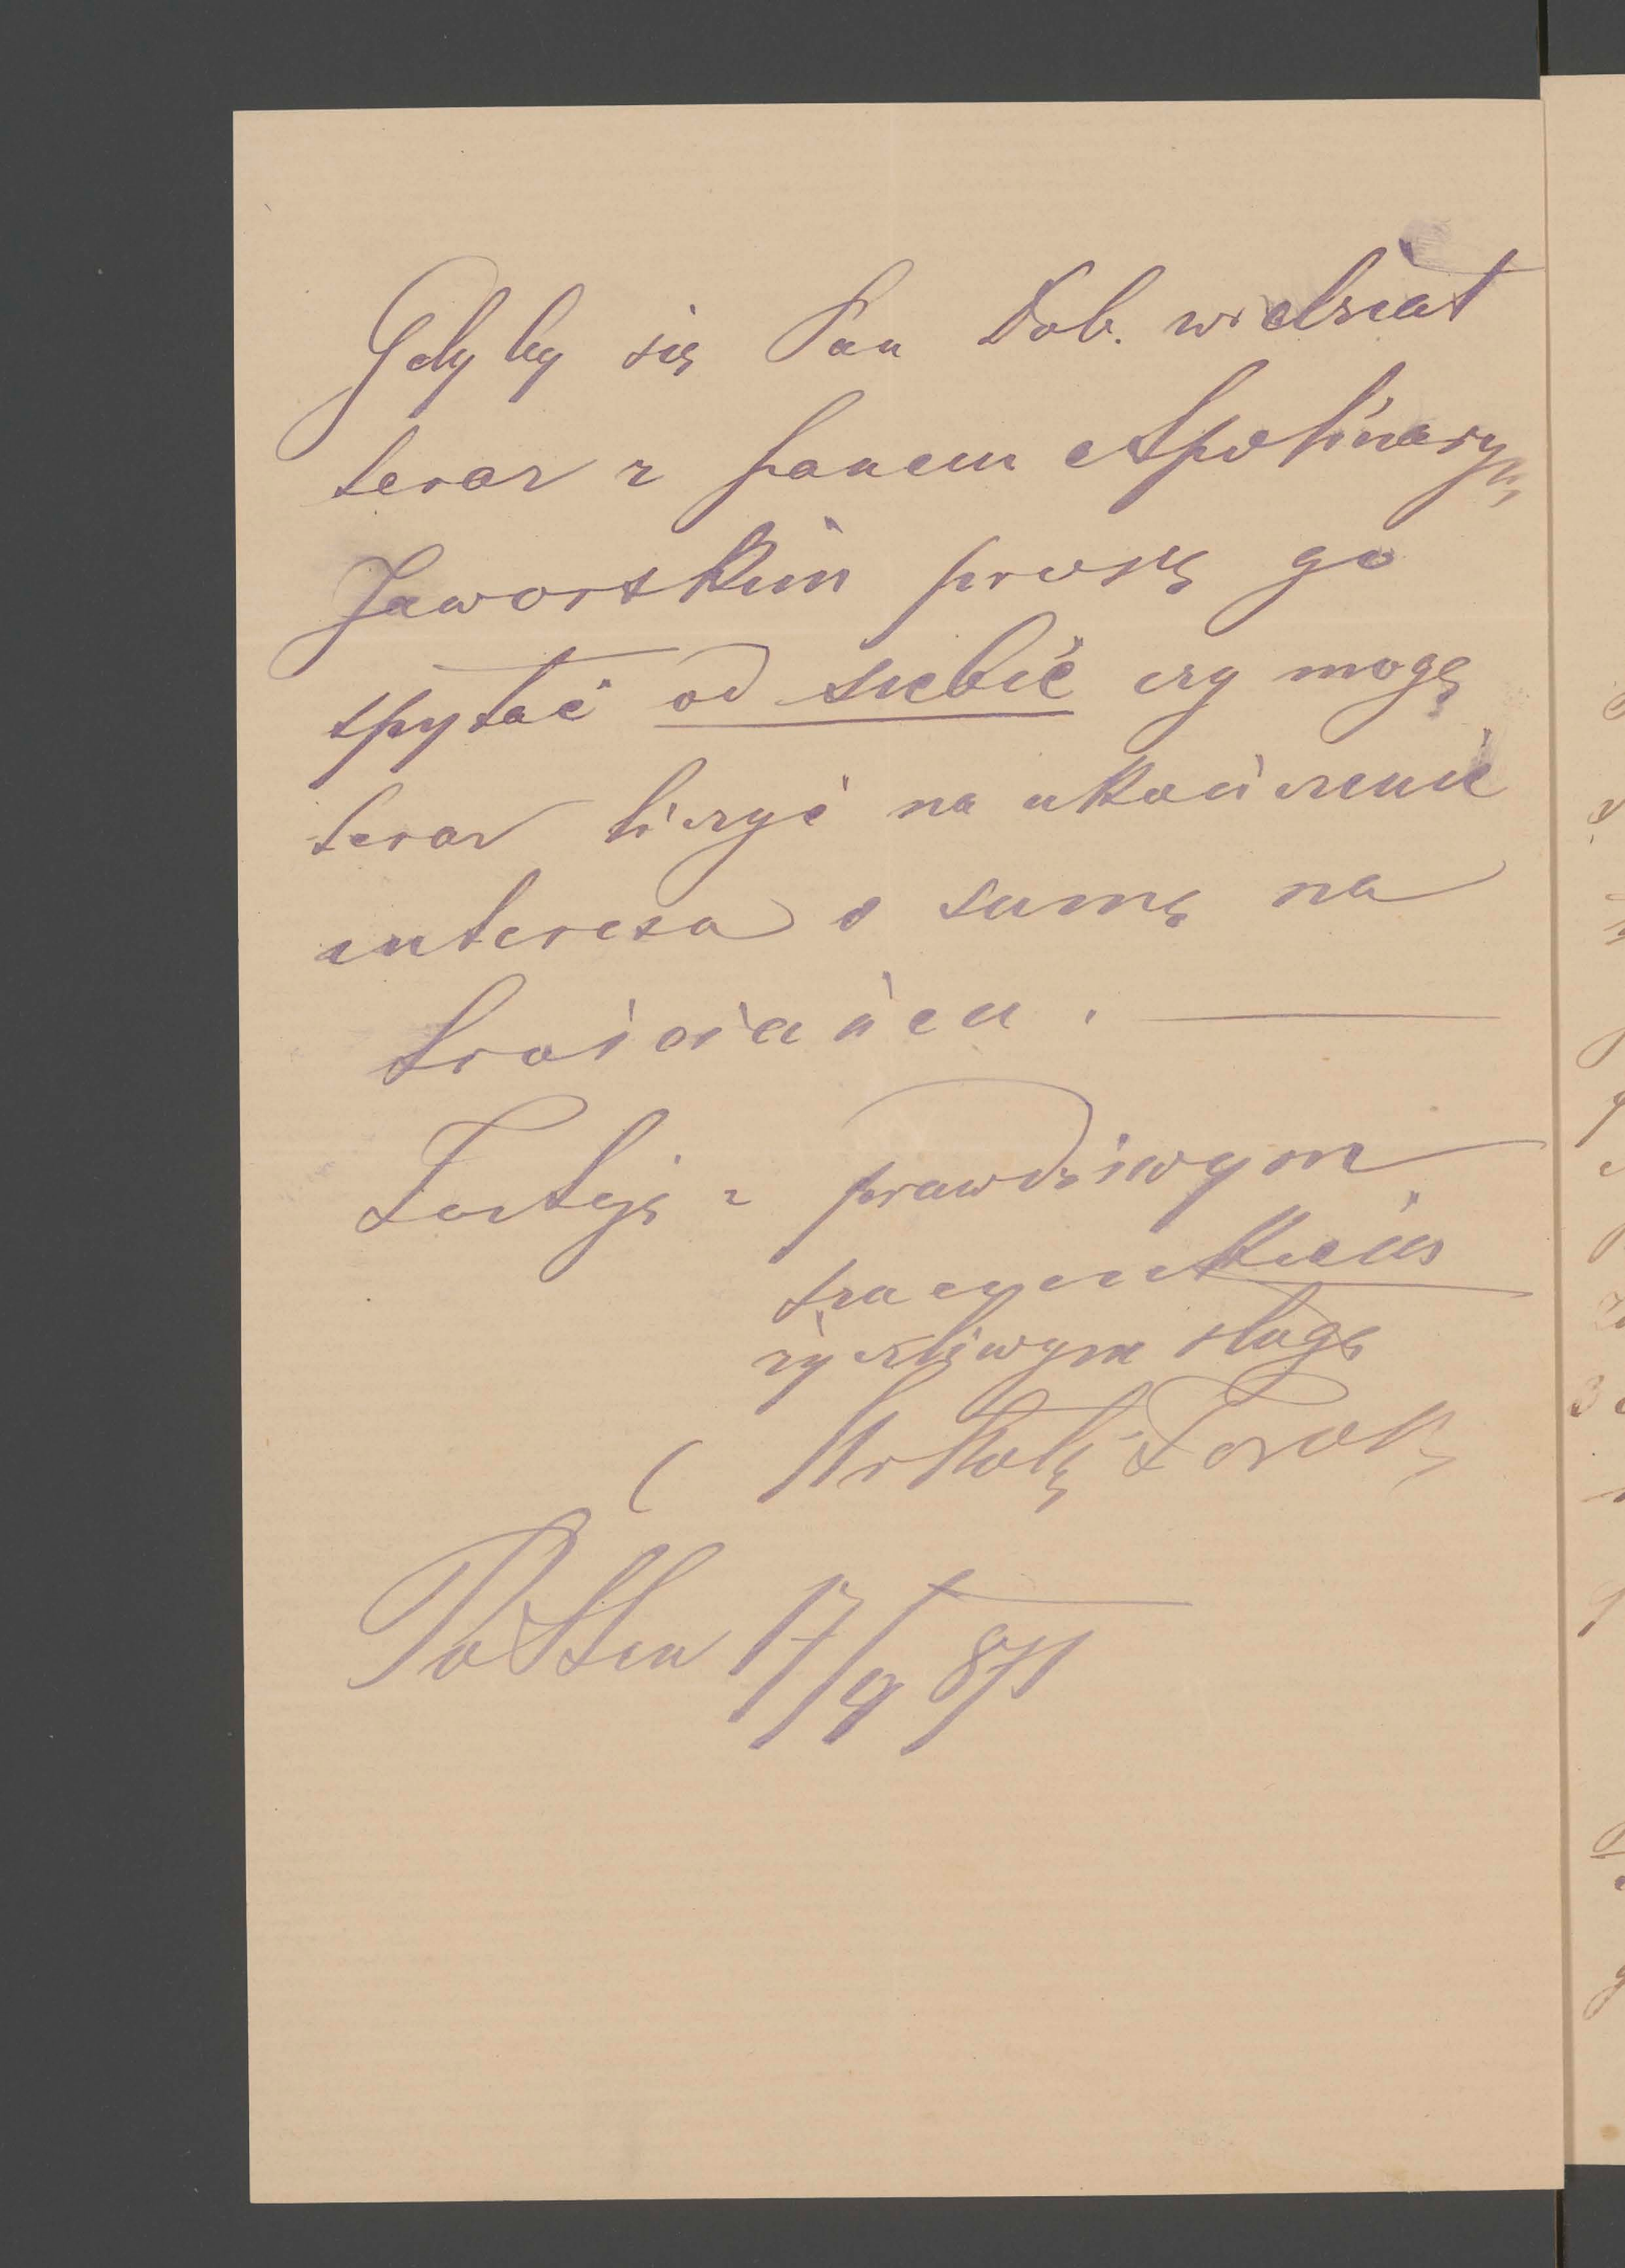 Gdyby się Pan Dob. widział
teraz z panem Apolinarym
Jaworskim proszę go
spytać od siebie czy mogę
teraz liczyć na ukończenie
interesa o sumę na
Zostaję z prawdziwym
szacunkiem
życzliwym sługą
17/9 871